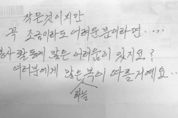 작은것이지만
꼭 조금이라도 어려운분이라면.....
살 힘들어 많은 어려움이 있지요?
여러분에게 많은복이 따를거예요...
하늘